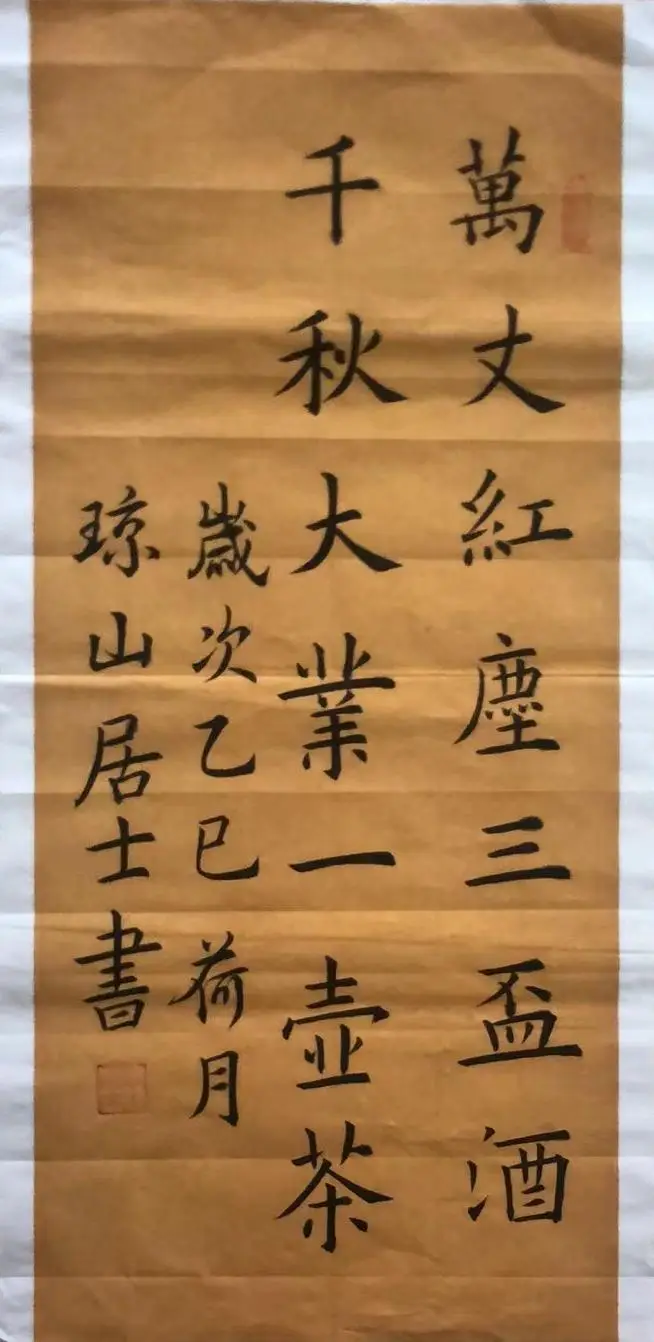 萬丈紅塵三盃酒
千秋大業一壺茶
歲次乙巳荷月
琼山居士書